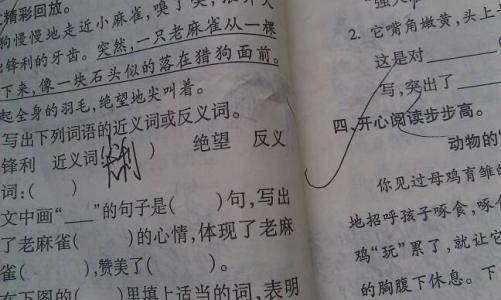 精彩回放。
狗慢慢地走近小麻雀,嗅了
出锋利的牙齿。突然,一只老麻雀从一棵
下来,像一块石头似的落在猎狗面前。
起全身的羽毛,绝望地尖叫着。
写出下列词语的近义词或反义词。
锋利 近义词( ) 绝望 反义
词:( )
文中画“___”的句子是( )句,写出
了老麻雀( )的心情,体现了老麻
雀( ),赞美了( )。
在下图的( )里填上适当的词,表明
2. 它嘴角嫩黄,头上
这是对
写,突出了
四、开心阅读步步高。
动物的
你见过母鸡育雏的
地招呼孩子啄食,啄
鸡“玩”累了,就让它
的胸腹下休息。下